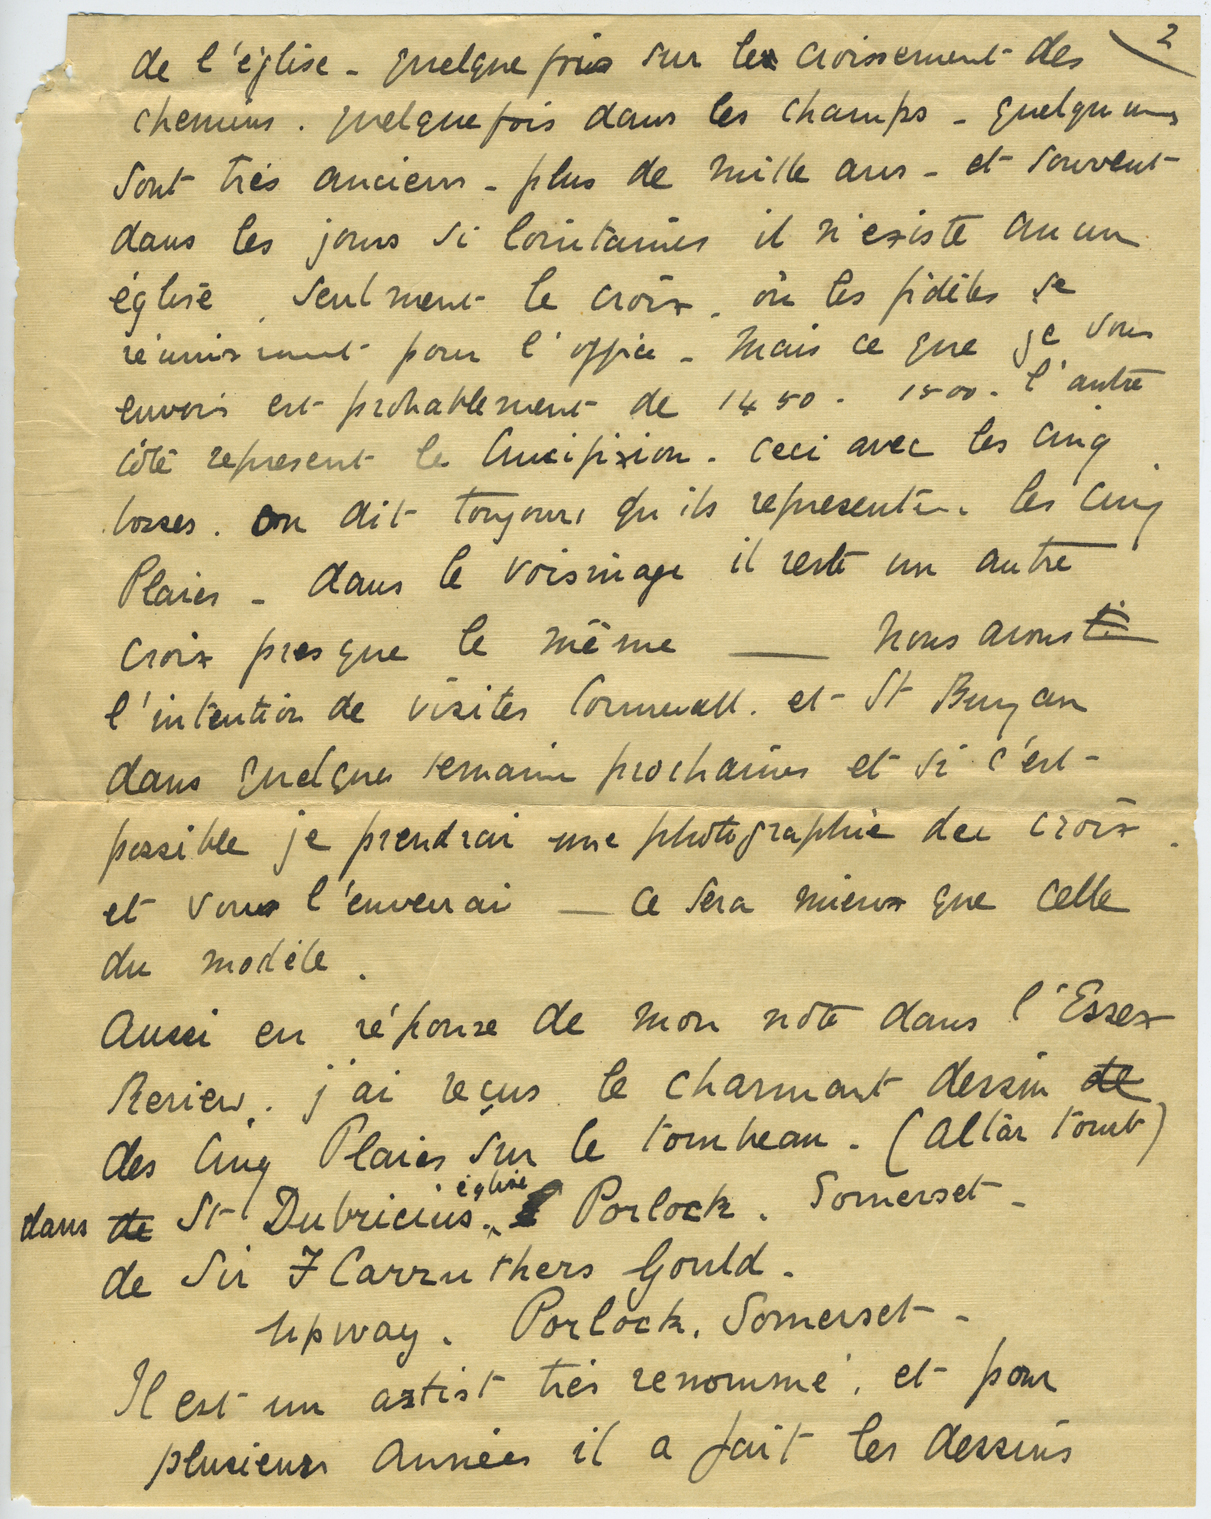 2
de l'église - quelque fois sur les croissement des
chemins. quelquefois dans les champs - quelqu'uns
sont très anciens - plus de mille ans - et souvent
dans les jours si lointaines il n'existe aucun
église, seulment le croix, où les fidèles se
réunissaient pour l'office - Mais ce que je vous
envois est probablement de 1450 - 1500. l'autre
côté represent le Crucifixion. Ceci avec les cinq
bosses. On dit toujours qu'ils representent les Cinq
Plaies - dans le voisinage il reste un autre
croix presque le même — Nous avons ti
l'intention de visiter Cornwall. et St Buryan
dans quelques semaine prochaines et si c'est
possible je prendrai une photographie de croix.
et vous l'enverrai — ce sera mieux que celle
du modèle.
Aussi en réponse de mon note dans l'Essex
Review. j'ai reçus le charmant dessin de
des Cinq Plaies sur le tombeau. (Altar tomb)
dans de St Dubricius. église Porlock. Somerset -
de Sir F Carruthers Gould.
Upway. Porlock. Somerset -
Il est un artist très renommé, et pour
plusieurs années il a fait les dessins